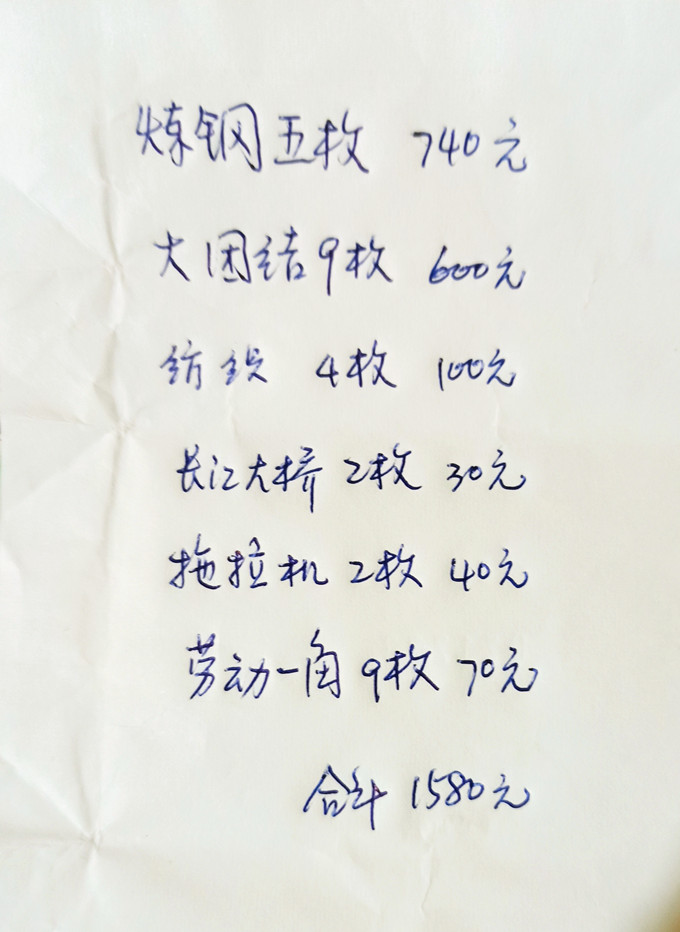 炼钢五枚 740元
大团结9枚 600元
纺织 4枚 100元
长江大桥 2枚 30元
拖拉机 2枚 40元
劳动一角 9枚 70元
合计 1580元